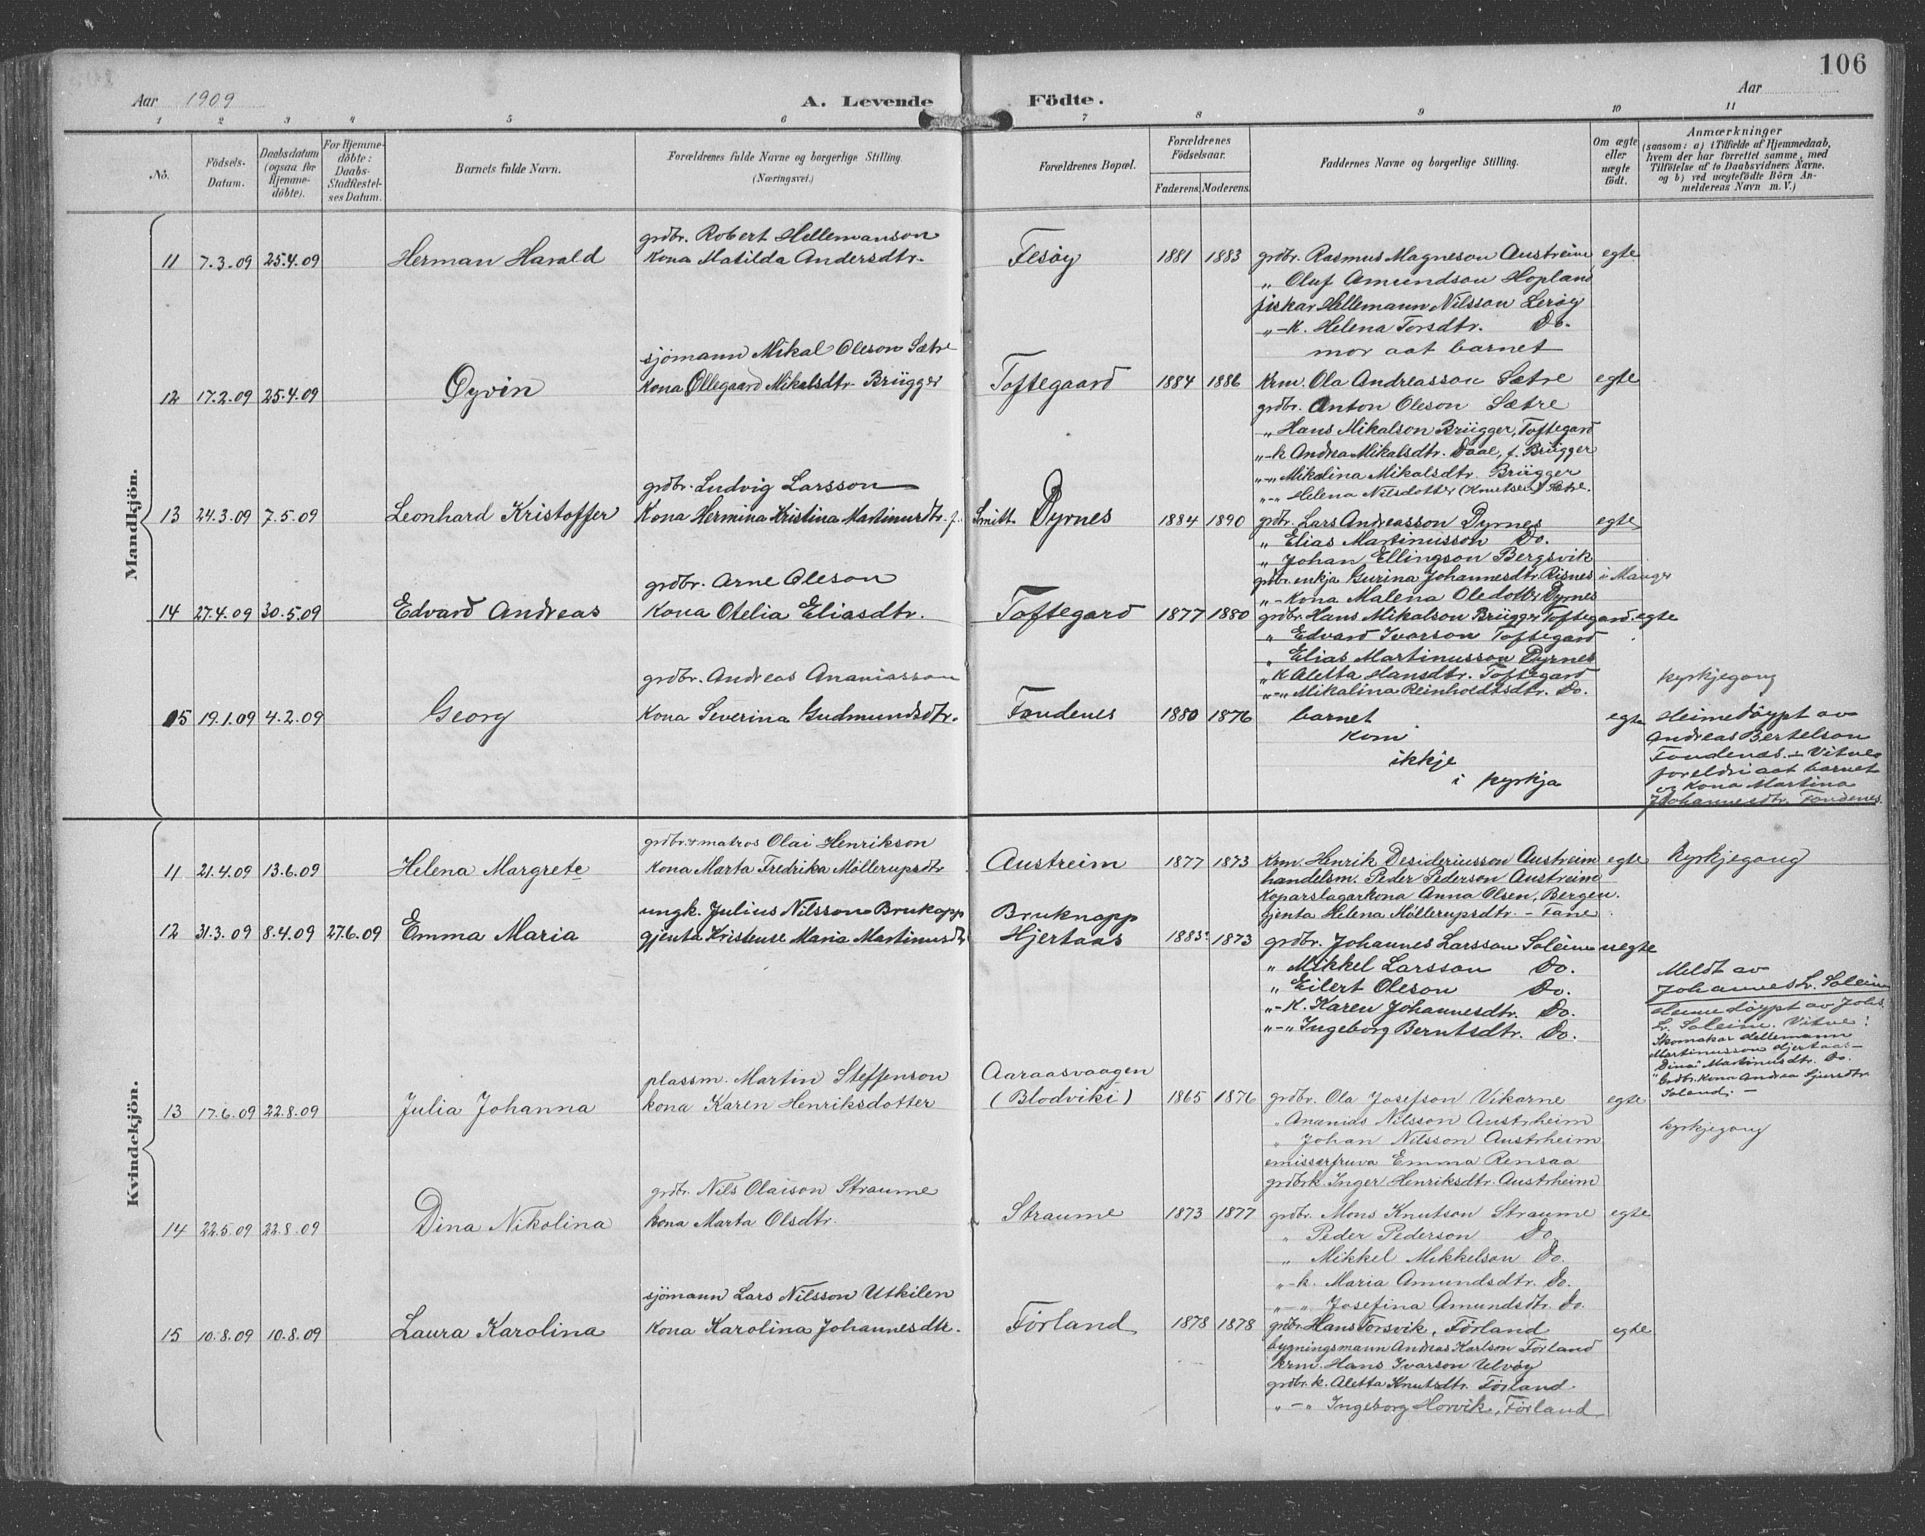 106
Aar 1909
A. Levende Födte.
Aar
1 2 3 4 5 6 7 8 9 10 11
No.
Födsels-Datum.
Daabsdatum (ogsaa for Hjemmedöbte).
For Hjemmedöbte: Daabs-Stadfæstelses Datum.
Barnets fulde Navn.
Forældrenes fulde Navne og borgerlige Stilling. (Næringsvei.)
Forældrenes Bopæl.
Forældrenes Födselsaar.
Faderens. Moderens.
Faddernes Navne og borgerlige Stilling.
Om ægte eller uægte födt.
Anmærkninger
(saasom: a) i Tilfælde af Hjemmedaab, hvem der har forrettet samme, med Tilföielse af to Daabsvidners Navne, og b) ved uægtefödte Börn Anmelderens Navn m. V.)
Mandkjön.
grdbr. Robert Hellemanson
11 7.3.09 25.4.09 Herman Harald Kona Matilda Andersdtr. Fesöy 1881 1883 grdbr. Rasmus Magneson Austreim egte
„ Oluf Amundson Hopland
fiskar Hellemann Nilsson Leröy
„-k. Helena Torsdtr. Do.
mor aat barnet
sjömann Mikal Oleson Sætre
12 17.2.09 25.4.09 Öyvin Kona Ollegaard Mikalsdtr. Brügger Toftegaard 1884 1886 Krm. Ola Andreasson Sætre egte
grdbr. Anton Oleson Sætre
„ Hans Mikalson Brügger, Toftegard
„-k Andrea Mikalsdtr. Daae, f. Brügger
„-„ Mikalina Mikalsdtr. Brügger
„-„ Helena Nilsdotter (Knutsen) Sætre.
grdbr. Ludvig Larsson
13 24.3.09 7.5.09 Leonhard Kristoffer Kona Hermina Kristina Martinusdtr. f. Smitt Dyrnes 1884 1890 grdbr. Lars Andreasson Dyrnes egte
„ Elias Martinusson Do.
„ Johan Ellingson Bergsvik
grdbr. enkja Gurina Johannesdtr. Risnes i Manger
„-Kona Malena Oledottr Dyrnes
grdbr. Arne Oleson
14 27.4.09 30.5.09 Edvard Andreas Kona Otelia Eliasdtr. Toftegard 1877 1880 grdbr. Hans Mikalson Brügger Toftegard. egte
„ Edvard Ivarson Toftegard
„ Elias Martinusson Dyrnes
„ K Aletta Hansdtr. Toftegard
„-„ Mikalina Reinholdtsdtr. Do.
grdbr. Andreas Ananiasson
kyrkjegang
15 19.1.09 4.2.09 Georg Kona Severina Gudmundsdtr. Fondenes 1880 1876 barnet egte Heimedöypt av
kom Andreas Bertelson
ikkje Fondenes. Vitne
i kyrkja foreldri aat barnet
og Kona Martina
Johannesdtr. Fondenes.
Kvindekjön.
grdbr. + matros Olai Henrikson
11 21.4.09 13.6.09 Helena Margrete Kona Marta Fredrika Möllerupsdtr Austreim 1877 1873 Krm. Henrik Desideriusson Austreim egte Kyrkjegang
handelsm. Peder Pederson Austreim
Koparslagarkona Anna Olsen, Bergen.
gjenta Helena Möllerupsdtr. - Fane
ungk. Julius Nilsson Bruknapp Bruknapp
12 31.3.09 8.4.09 27.6.09 Emma Maria gjenta Kristense Maria Martinusdtr Hjertaas 1885 1873 grdbr. Johannes Larsson Soleim uegte
„ Mikkel Larsson Do. Meldt av
„ Eilert Oleson Do. Johannes L. Soleim
„-K. Karen Johannesdtr. Do. Heimedöypt av Johs.
„-„ Ingeborg Berntsdtr. Do. L. Soleim. Vitne:
Skomakar Hellemann
Martinusson Hjertaas
Dina Martinusdtr. Do.
Grdbr. Kona Andrea
plassm. Martin Steffenson Aaraasvaagen
13 17.6.09 22.8.09 Julia Johanna kona Karen Henriksdotter (Blodviki) 1865 1876 grdbr. Ola Josefson Vikarne egte
„ Ananias Nilsson Austrheim kyrkjegang
„ Johan Nilsson Austrheim
emisserfruva Emma Rensaa
grdbrk. Inger Henriksdtr. Austrheim
grdbr. Nils Olaison Straume
14 22.5.09 22.8.09 Dina Nikolina kona Marta Olsdtr. Straume 1873 1877 grdbr. Mons Knutson Straume egte
„ Peder Pederson Do
„ Mikkel Mikkelson Do.
„-k. Maria Amundsdtr. Do.
„-„ Josefina Amundsdtr. Do.
sjömann Lars Nilsson Utkilen
15 10.8.09 10.8.09 Laura Karolina Kona Karolina Johannesdtr. Förland 1878 1878 grdbr. Hans Torsvik, Förland egte
bygningsmann Andreas Karlson Förland
Krm. Hans Ivarson Ulvöy
grdbr. k. Aletta Knutsdtr. Förland.
„-„ Ingeborg Horvik, Förland